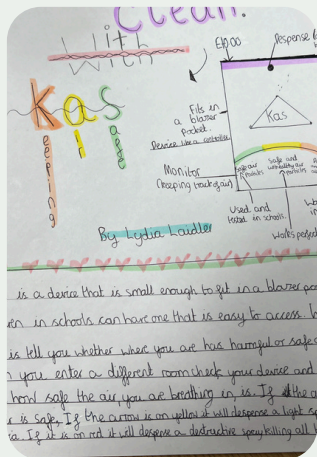 Clean.
With
With
Kas
Keeping
Air
Safe
£10.00
Response
Fits in
a blazer
pocket.
Device like a controller
Monitor
(keeping track of air)
Kas
Safe air
particles
Safe and
unhealthy air
particles
Used and
tested in schools.
Works
By Lydia Laidler
is a device that is small enough to fit in a blazer
in schools can have one that is easy to access.
is tell you whether where you are has harmful or safe
you enter a different room check your device and
how safe the air, you are breathing in, is. If the
is safe, If the arrow is on yellow it will despense a light
If it is on red it will despense a destructive spray killing all